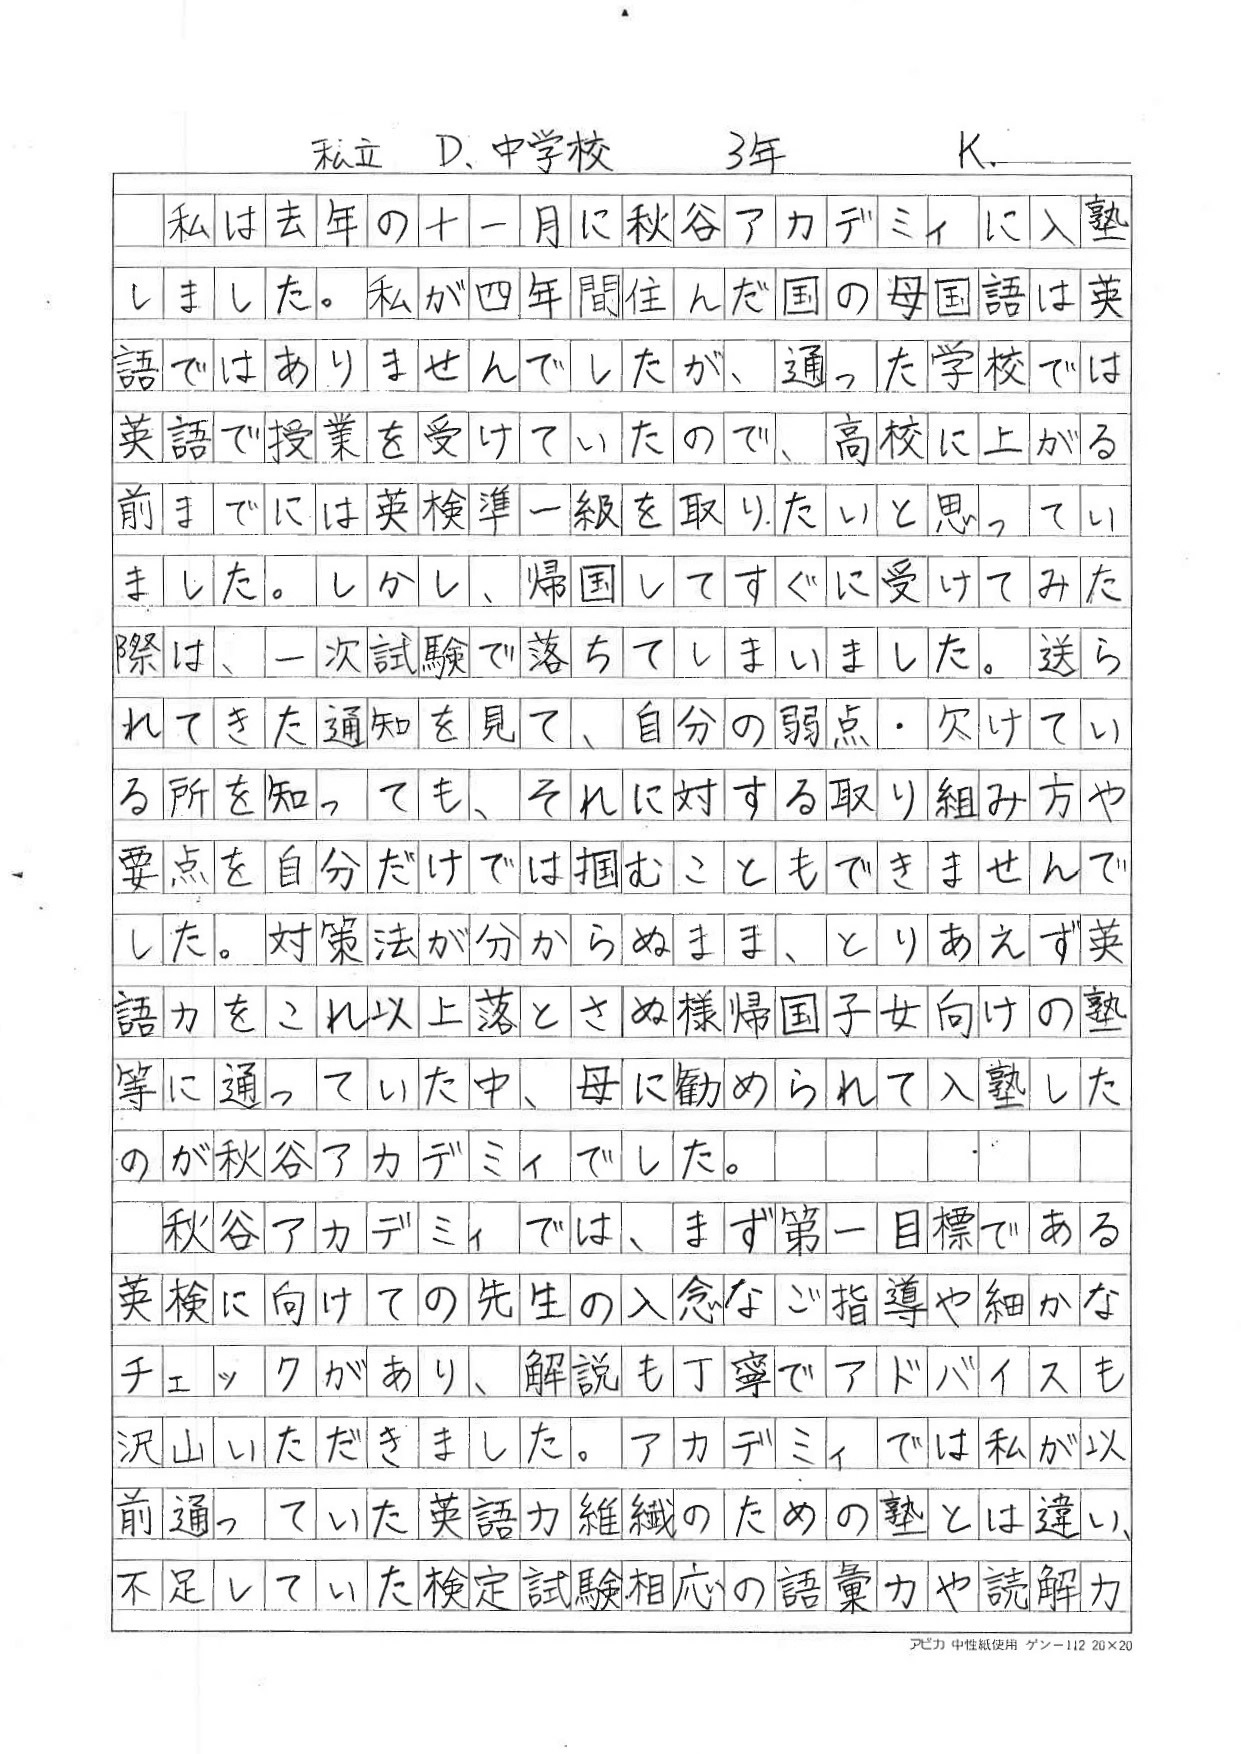 私立 D、中学校 3年 K.
私は去年の十一月に秋谷アカデミィに入塾
しました。私が四年間住んだ国の母国語は英
語ではありませんでしたが、通った学校では
英語で授業を受けていたので、高校に上がる
前までには英検準一級を取りたいと思ってい
ました。しかし、帰国してすぐに受けてみた
際は、一次試験で落ちてしまいました。送ら
れてきた通知を見て、自分の弱点・欠けてい
る所を知っても、それに対する取り組み方や
要点を自分だけでは掴むこともできませんで
した。対策法が分からぬまま、とりあえず英
語力をこれ以上落とさぬ様帰国子女向けの塾
等に通っていた中、母に勧められて入塾した
のが秋谷アカデミィでした。
秋谷アカデミィでは、まず第一目標である
英検に向けての先生の入念なご指導や細かな
チェックがあり、解説も丁寧でアドバイスも
沢山いただきました。アカデミィでは私が以
前通っていた英語力維繊のための塾とは違い、
不足していた検定試験相応の語彙力や読解力
アピカ 中性紙使用 ゲンー112 20×20